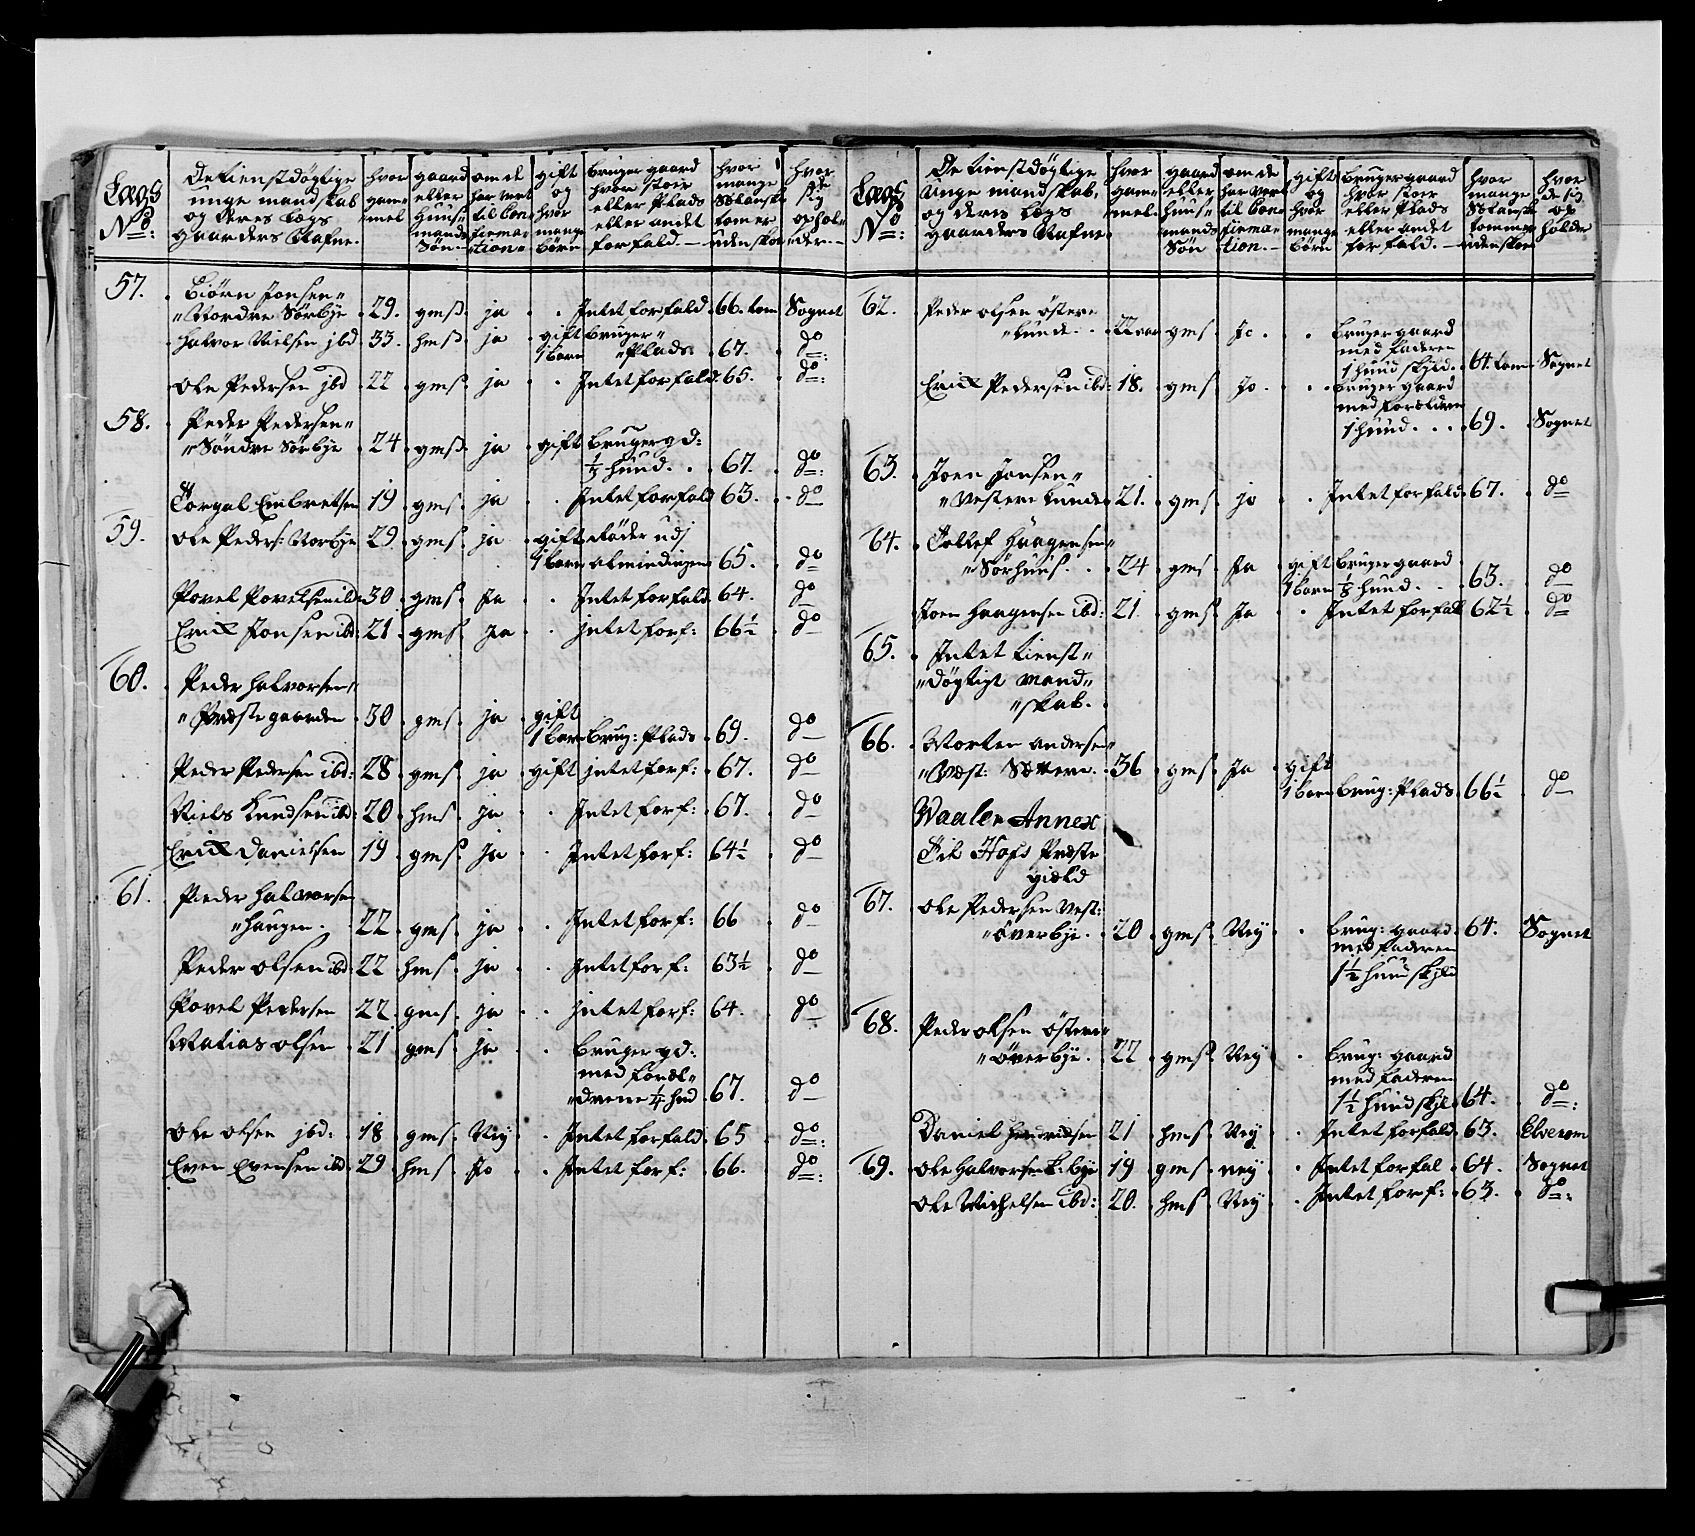 Lægs No:
De tienstdögtige unge mandskab og deres Lægs gaarders Nafne.
hvor gammel
gaard eller huusmands Sön
om de har vert til Confirmation
gift og hvor mange börn
bruger gaard hvor stoer eller Plads eller andet forfald
hvor mange tommer uden skoe
hvor de sig opholder
57. Biörn Jonsen
Nordre Sörbye 29. gms. ja Intet forfald 66. tom Sognet
Halvor Nielsen ibd 33. hms. ja gift 1 barn bruger Plads 67. do
Ole Pedersen ibd 22 gms. ja Intet forfald 65. do
58. Peder Pedersen
Söndre Sörbye 24 gms. ja gift bruger gd: ½ hund. 67. do
Torgal Embretsen 19 gms. ja Intet forfald 63. do
59. Ole Peders: Norbye 29. gms. ja gift 1 barn Röder udj almindingen 65. do
Povel Povelsen ibd 30 gms. Ja Intet forfald 64. do
Erick Jonsen ibd: 21 gms. Ja intet forf: 66½ do
60. Peder Halvorsen
Præstegaarden 30 gms. ja gift 1 barn brug: Plads 69. do
Peder Pedersen ibd: 28 gms. ja gift intet forf: 67. do
Niels Knudsen ibd: 20 hms. ja Intet forf: 67. do
Erick Danielsen 19 gms. ja Intet forf: 64½ do
61. Peder Halvorsen
Haugen. 22 gms. ja Intet forf: 66 do
Peder Olsen ibd: 22 hms. ja Intet forf: 63½ do
Povel Pedersen 22 gms. ja intet forf: 64. do
Matias Olsen 21 gms. ja bruger gd: med forældrene ¼ hud 67. do
Ole Olsen ibd: 18 gms. Ney Intet forfald 65 do
Even Evensen ibd. 29 hms. Jo Intet forf: 66. do
Lægs No:
De tienstdögtige unge mandskab og deres Lægs gaarders Nafne
hvor gammel
gaard eller huusmands Sön
om de har vert til Confirmation.
gift og hvor mange börn
bruger gaard hvor stoer eller Plads eller andet forfald.
hvor mange tommer uden skoe
hvor de sig opholder
62. Peder Olsen östere
Lunde. 22 aar gms. Jo bruger gaard med faderen 1 hund skyld. 64. tom Sognet
Erick Pedersen ibd: 18. gms. Jo bruger gaard med forældrene 1 hund 69. Sognet
63. Joen Jonsen
Vestere Lunde 21. gms. jo Intet forfald 67. do
64. Tollef Haagensen
Sörhuus. 24 gms. Ja gift 1 barn bruger gaard ½ hund. 63. do
Joen Haagensen ibd: 21 gms. Ja Intet forfald 62½ do
65. Intet tienstdögtigt mandskab.
66. Morten Andersen
Vest: Sættere. 36 gms. Ja gift 1 barn brug: Plads 66½ do
Waaler Annex
Til Hofs Præste gield
67. Ole Pedersen Vest:
Överbye. 20 gms. Ney brug: gaard med faderen 1½ huud skyld 64. Sognet
68. Peder Olsen östere
Överbye. 22 gms. Ney brug: gaard med faderen 1½ hund skyld 64. do
Daniel Hendricksen 21 hms. Ney Intet forfald 63. Elverom
69. Ole Halvorsen K: bye 19 gms. ney Intet forfal 64. Sognet
Ole Michelsen ibd: 20. hms. Ney Intet forf: 63. do